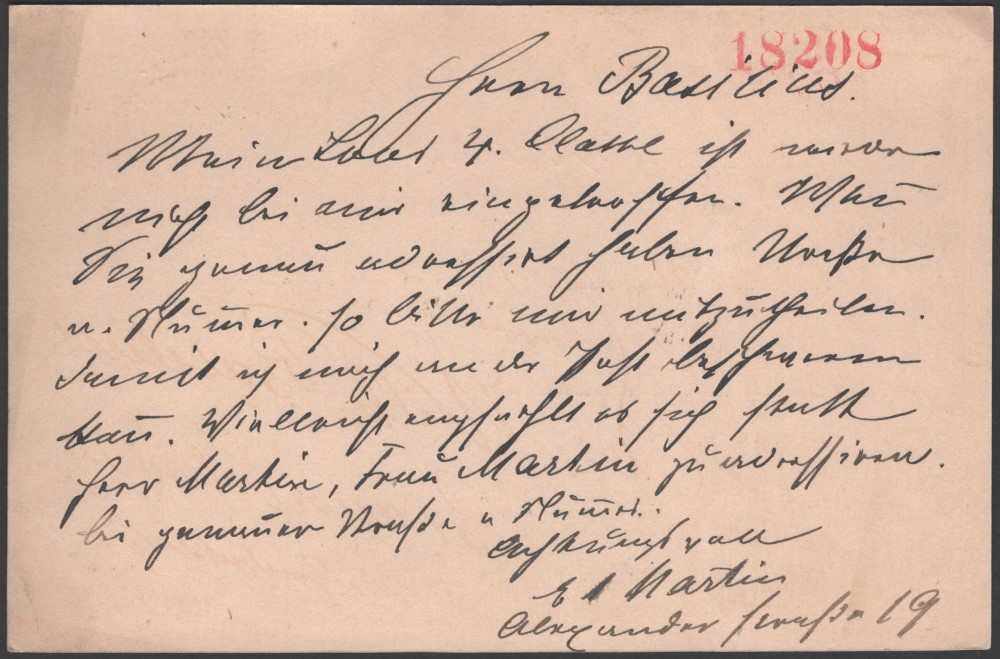 18208
Herrn Bassilius.
Mein Loos 4. Classe ist wieder
nicht bei mir eingetroffen. Wenn
Sie genau adressirt haben Straße
u. Numer. so bitte mir mitzutheilen.
damit ich mich an der Post beschweren
kan̄. Vielleicht empfiehlt es sich statt
Herr Martin, Frau Martin zu adressiren.
bei genauer Straße u Numer.
Achtungsvoll
E Martin
Alexander straße 19